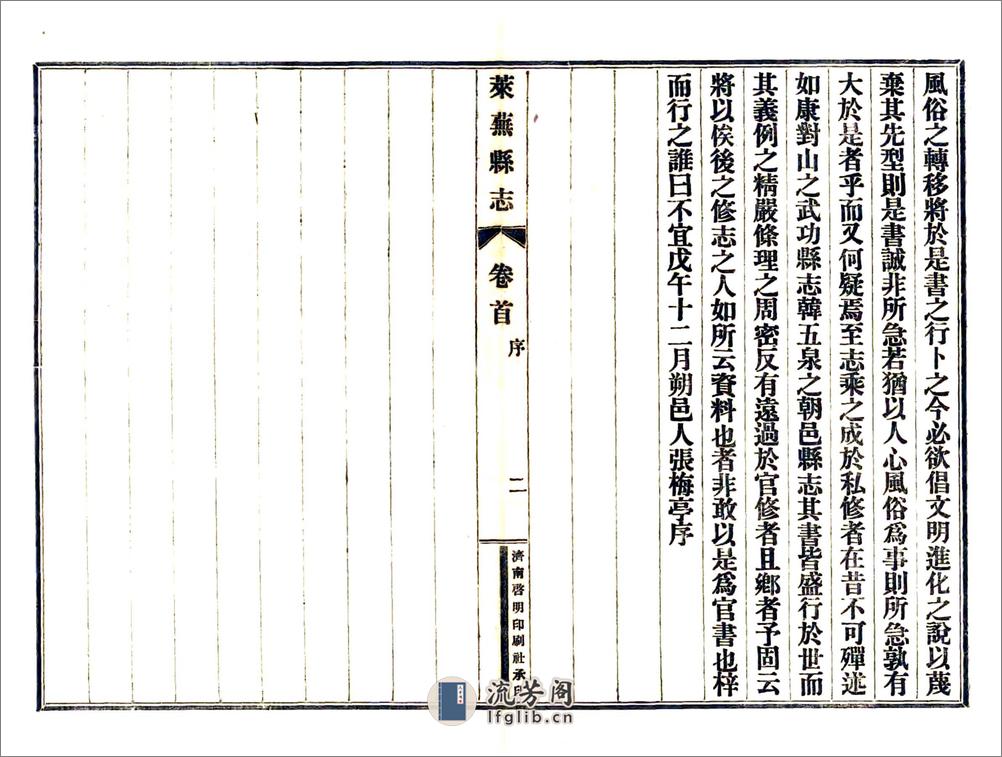 風俗之轉移將於是書之行卜之今必欲倡文明進化之說以蔑
棄其先型則是書誠非所急若猶以人心風俗爲事則所急孰有
大於是者乎而又何疑焉至志乘之成於私修者在昔不可殫述
如康對山之武功縣志韓五泉之朝邑縣志其書皆盛行於世而
其義例之精嚴條理之周密反有遠過於官修者且鄉者予固云
將以俟後之修志之人如所云資料也者非敢以是爲官書也梓
而行之誰曰不宜戊午十二月朔邑人張梅亭序
萊蕪縣志
卷首
序
二
濟南啓明印刷社承印
流芳阁
lfglib.cn